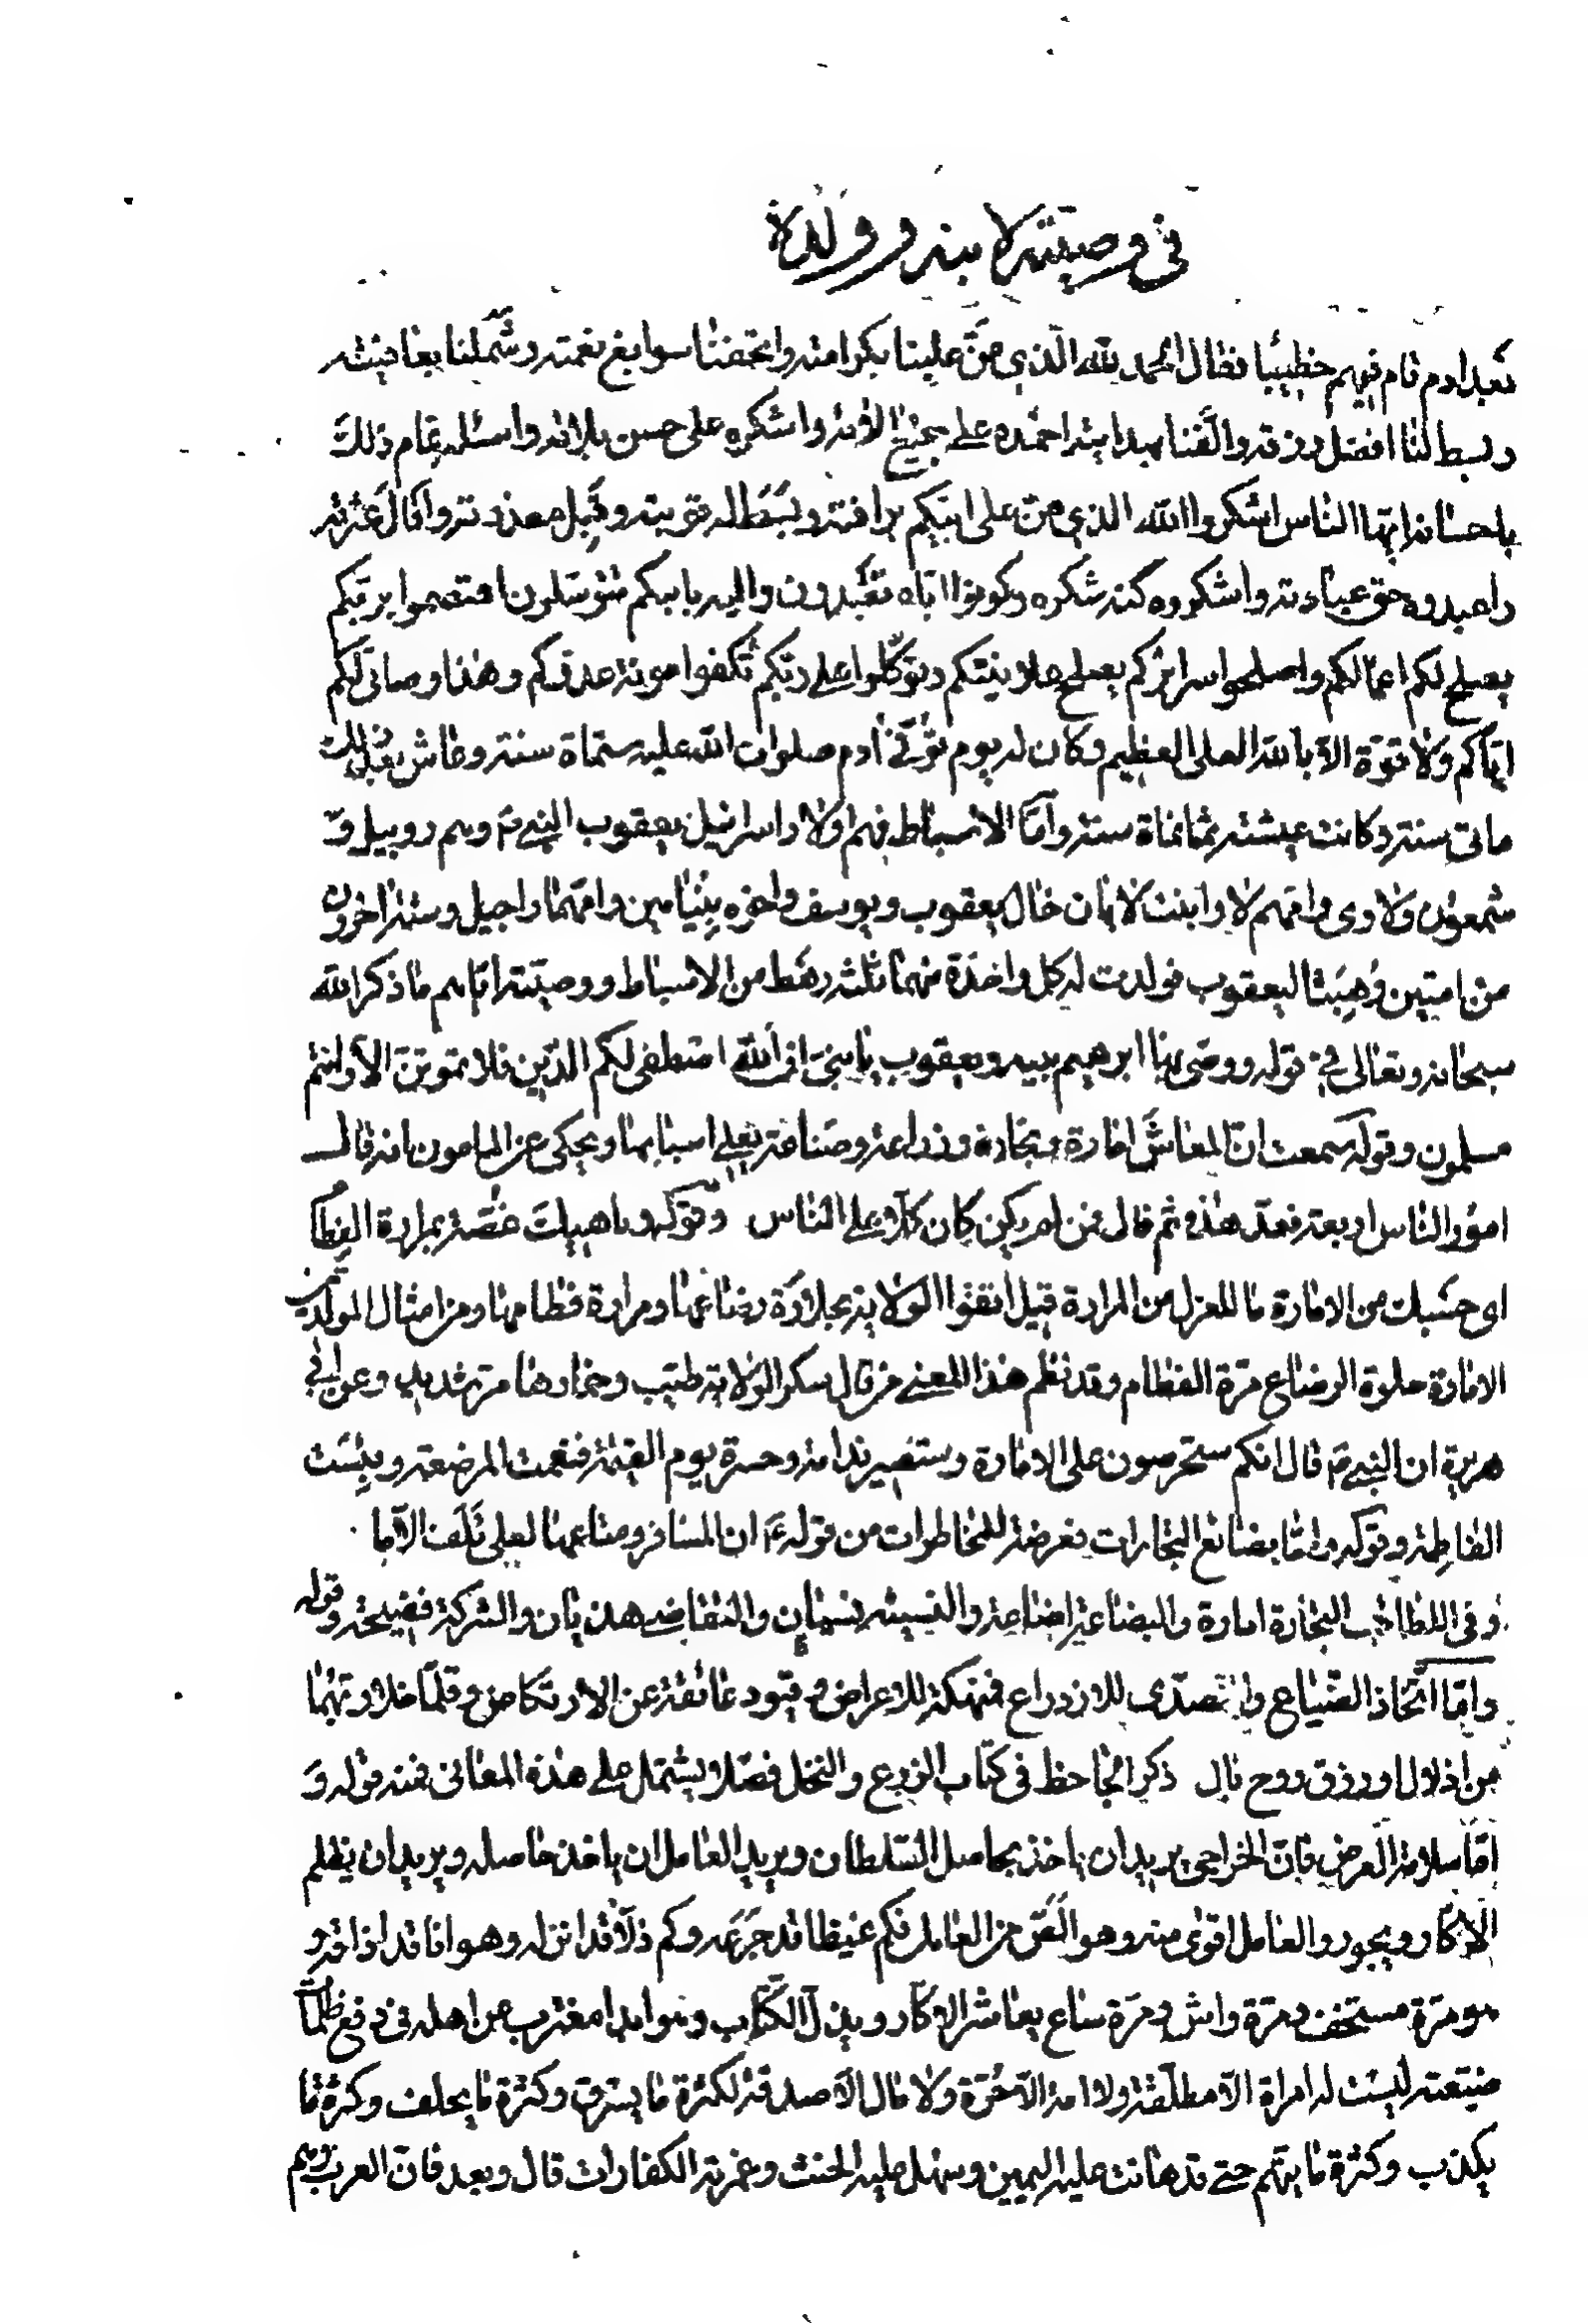 في وصيته لابنه وولده
بعد ادم قام فيهم خطيبا فقال الحمد لله الذي منَّ علينا بكرامته واتحفنا سوابغ نعمته وشملنا بعافيته
وبسط لنا افضل رزقه والّفنا بهدايته احمده على جميع الائه واشكره على حسن بلائه واسئله تمام ذلك
باحسانه ايها الناس اشكروا الله الذي منّ على ابيكم برافته وبسط له توبته وقبل معذرته واقال عثرته
واعبدوه حق عبادته واشكروه كنه شكره وكونوا اياه تعبدون واليه بابيكم متوسلون اعتصموا بربكم
يصلح لكم اعمالكم واصلحوا سرائركم يصلح علانيتكم وتوكلوا على ربكم تكفوا مونة عدوكم وهذا وصاتي لكم
اياكم ولا قوة الا بالله العلي العظيم وكان له يوم توفي ادم صلوات الله عليه ستماة سنة وعاش بعد ذلك
ماتي سنة وكانت عيشته ثمانماة سنة وامّا الاسباط فهم اولاد اسرائيل يعقوب النبي ع وهم روبيل و
شمعون ولاوي وامهم لاوا بنت لابان خال يعقوب ويوسف واخوه بنيامين وامهما راحيل وستة اخرون
من امتين وُهِبَتا ليعقوب فولدت له كل واحدة منهما ثلثه رهط من الاسباط ووصيته اياهم ما ذكر الله
سبحانه وتعالى في قوله ووصى بها ابرهيم بنيه ويعقوب يا بنيّ ان الله اصطفى لكم الدّين فلا تموتنّ الا وانتم
مسلمون وقوله سمعت انّ المعاش امارة وتجارة وزراعة وصناعة يعلي اسبابها ويحكى عن المامون انه قال
امور الناس اربعة فعدّ هذه ثم قال فمن لم يكن كان كلا على الناس وقوله وناهيك غصّة بمرارة الفطام
اي حسبك من الامارة ما للعزل من المرارة قيل اتقوا الولاية بحلاوة رضاعها ومرارة فطامها ومن امثال المولدين
الامارة حلوة الرضاع مرة الفطام وقد نظم هذا المعنى من قال سكر الولاية طيب وخمارها مر شديد وعن ابي
هريرة ان النبي ع قال انكم ستحرصون على الامارة وستصير ندامة وحسرة يوم القيمة فنعمت المرضعة وبئست
الفاطمة وقوله وامّا بضائع التجارات فعرضة للمخاطرات من قوله ع ان المسافر ومتاعهما لعلى تَلَف الا ما
وقى الله التجارة امارة والبضاعة اضاعة والنسيئة نسيان والتقاضي هذيان والشركة فضيحة وقوله
وامّا اتخاذ الضياع والتصدّي للازدراع فمنهكة للاعراض وقيود عائقة عن الارتكاض وقلما خلا ربهما
من اذلال او رزق روح بال ذكر الجاحظ في كتاب الزرع والنخل فصلا يشتمل على هذه المعاني فمنه قوله و
امّا سلامة العرض فانّ الخراجي يريد ان ياخذ بحاصل السّلطان ويريد العامل ان ياخذ حاصله ويريد ان يظلم
الاكّار ويجور والعامل اقوى منه وهو الَصّ من العامل فكم غيظا قد جرّعه وكم ذلا قد انزله وهوانا قد اذاقه و
هو مرة مستخف ومرة واش ومرة ساع بمعاشر الاكار وبذل الكتّاب وهو ابدا مغترب عن اهله في دفع ظلمات
ضيعته ليست له امراة الا مطلّقة ولا امة الا حُرّة ولا مال الا صدقة لكثرة ما يسرق وكثرة ما يحلف وكثرة ما
يكذب وكثرة ما يتهم حتى قد هانت عليه اليمين وسهل عليه الحنث وعزته الكفارات قال وبعد فان العرب وهم